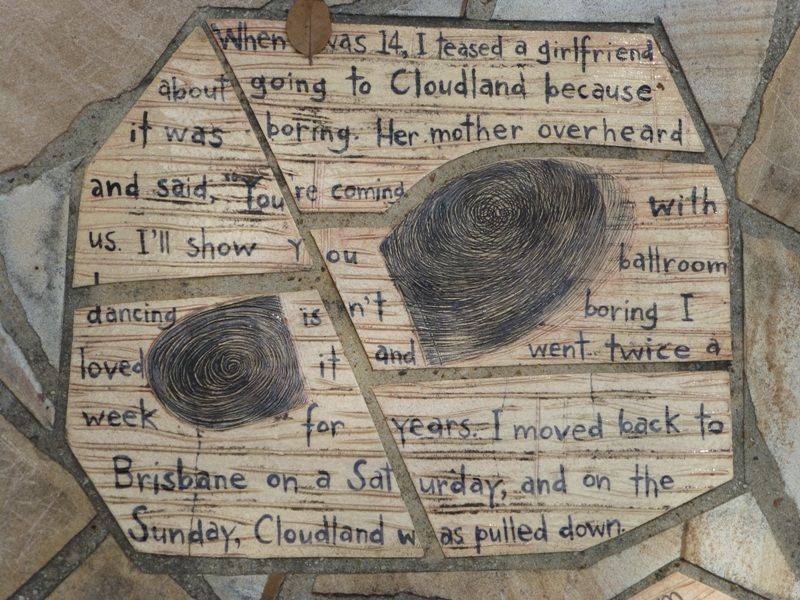 When was 14, I teased a girlfriend
about going to Cloudland because
it was boring. Her mother overheard
and said, "You're coming with
us. I'll show You ballroom
dancing isn't boring I
loved it and went twice a
week for years. I moved back to
Brisbane on a Saturday, and on the
Sunday, Cloudland was pulled down.